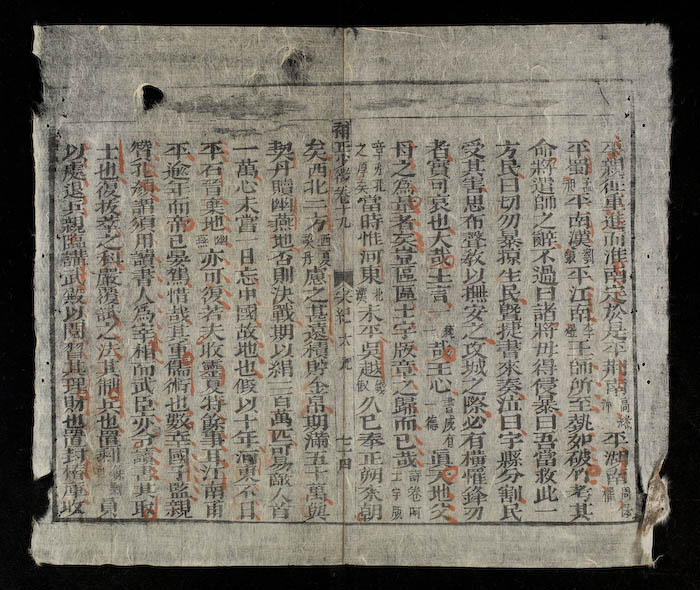 親征重進而淮南定於是平荊南高繼沖平湖南周保權
平蜀孟昶平南漢劉鋹平江南李煜王師所至勢如破竹考其
命將遣師之辭不過曰諸將毋得侵暴曰吾當救此一
方民曰切勿暴掠生民暨捷書來奏泣曰宇縣分割民
受其害思布聲教以撫安之攻城之際必有橫罹鋒刃
者實可哀也大哉王言一哉王心書咸有一德眞天地父
母之爲量者矣豈區區土宇版章之歸而已哉詩卷阿土宇版
章亦孔之厚矣當時惟河東北漢未平吳越錢俶久已奉正朔來朝
補正少微卷九 宋紀太祖 七十四
矣西北二方西夏契丹慮之甚遠積貯金帛期滿五十萬與
契丹贖幽燕地否則決戰期以絹二百萬匹可易敵人首
一萬心未嘗一日忘中國故地也假以十年河東不日
平石晉棄地幽燕亦可復若夫收靈夏特餘事耳江南甫
平逾年而帝已晏駕惜哉其重儒術也數幸國子監親
贊孔顏謂須用讀書人爲宰相而武臣亦令讀書其取
士也復拔萃之科嚴覆試之法其制兵也置剩員
以處退卒親臨講武殿以閱習其理財也置封樁庫收